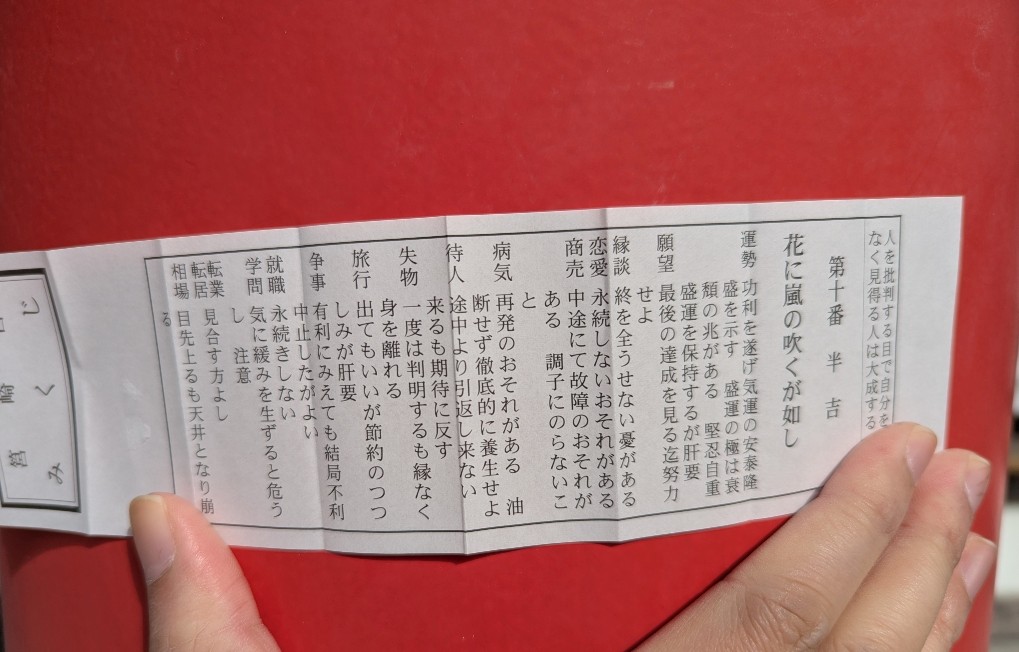 人を批判する目で自分を
なく見得る人は大成する
第十番 半吉
花に嵐の吹くが如し
運勢 功利を遂げ気運の安泰隆
盛を示す 盛運の極は衰
頽の兆がある 堅忍自重
盛運を保持するが肝要
願望 最後の達成を見る迄努力
せよ
縁談 終を全うせない憂がある
恋愛 永続しないおそれがある
商売 中途にて故障のおそれが
ある 調子にのらないこ
と
病気 再発のおそれがある 油
断せず徹底的に養生せよ
待人 途中より引返し来ない
来るも期待に反す
失物 一度は判明するも縁なく
身を離れる
旅行 出てもいいが節約のつつ
しみが肝要
争事 有利にみえても結局不利
中止したがよい
就職 永続きしない
学問 気に緩みを生ずると危う
し 注意
転業
転居 見合す方よし
相場 目先上るも天井となり崩
る
みくじ